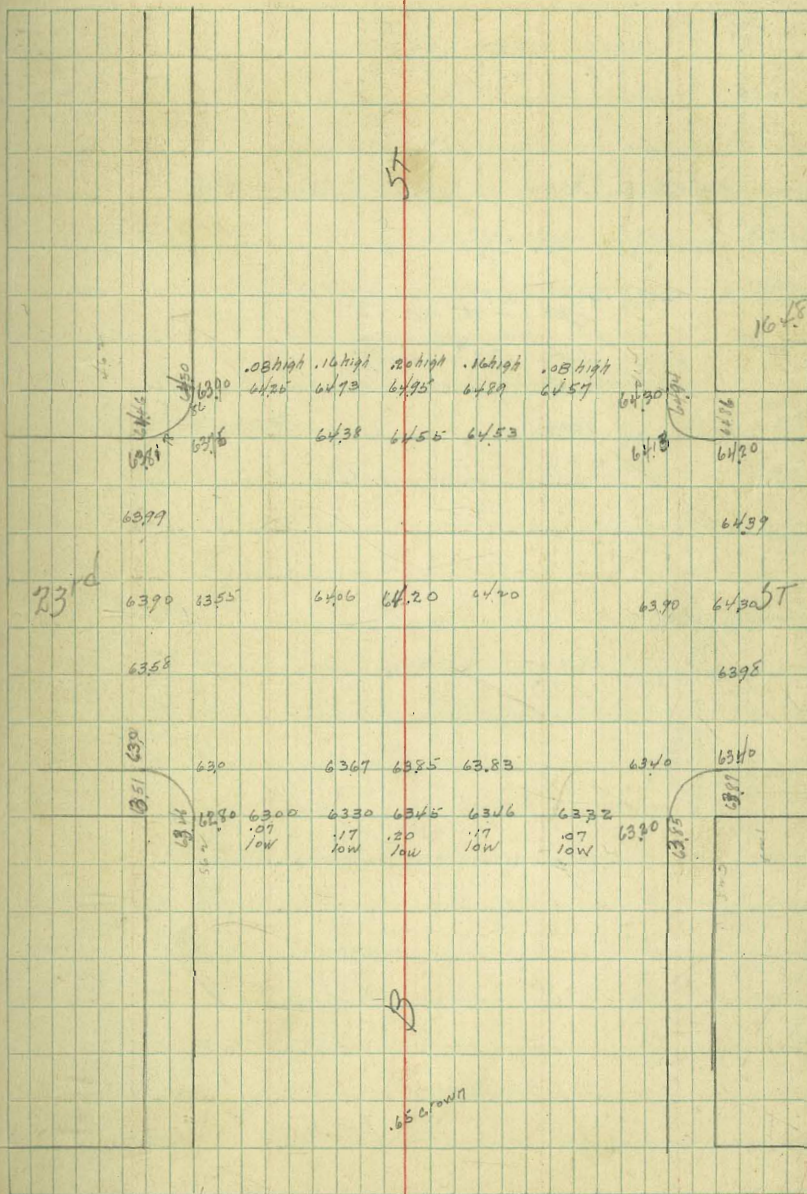 ST
1648
.08 high .16 high .20 high .16 high .08 high
6450 6390 6425 6473 6495 6489 6457 6430 6494
6466 6486
6381 6376 6438 6455 6453 6413 6420
6399 6439
23rd 6390 6355 6406 64.20 6420 63.90 6430 ST
6358 6398
630 630 6367 6385 63.83 6340 6340
6351 6389
6280 6300 6330 6345 6346 6332 6330 6385
.07 .17 .20 .17 .07
low low low low low
B
.65 crown